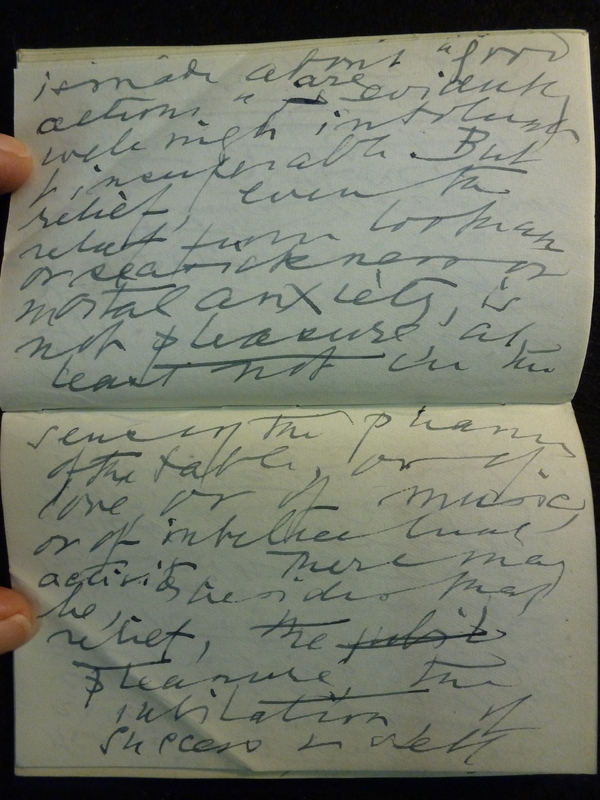 is made about "good
actions" are evidently
well nigh intolera
& insufferable. But
relief, even the
relief from toothache
or seasickness or
mortal anxiety, is
not pleasure, at
least not in the
sense of the pleasures
of the table, or of
love or of music,
or of intellectual
activity. There may
be, besides that
relief, the
pleasure, the
jubilation of
success in self